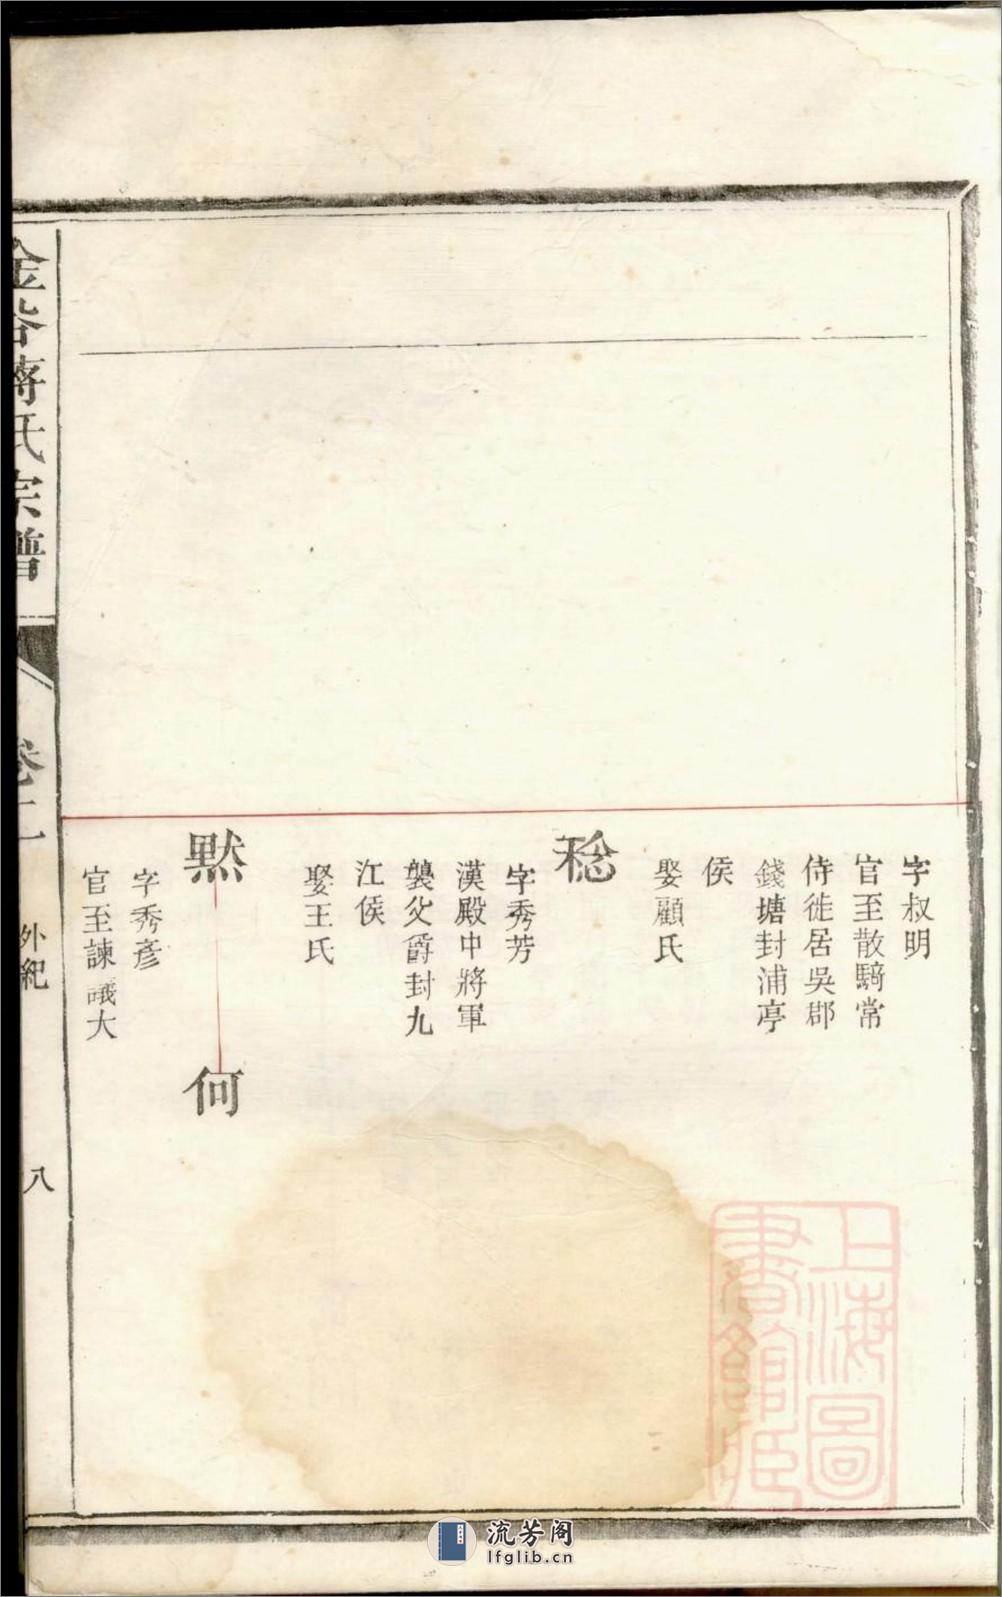 字叔明
官至散騎常
侍徙居吳郡
錢塘封浦亭
侯
娶顧氏
稔
字秀芳
漢殿中將軍
襲父爵封九
江侯
娶王氏
默
何
字秀彥
官至諫議大
金谷蔣氏宗譜
卷二
外紀
八
上海圖書館藏
流芳阁
lfglib.cn